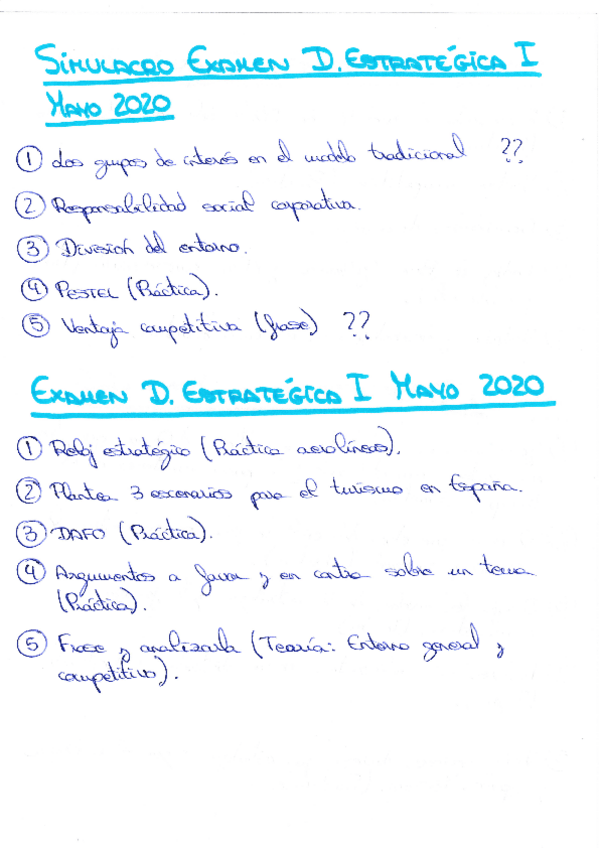 SIMULACRO EXAMEN D. ESTRATÉGICA I
MAYO 2020
① Los grupos de interés en el modelo tradicional ??
② Responsabilidad social corporativa.
③ División del entorno.
④ PESTEL (Práctica).
⑤ Ventaja competitiva (frase) ??
EXAMEN D. ESTRATÉGICA I MAYO 2020
① Reloj estratégico (Práctica aerolíneas).
② Plantea 3 escenarios para el turismo en España.
③ DAFO (Práctica).
④ Argumentos a favor y en contra sobre un tema
(Práctica).
⑤ Frase y analizarla (Teoría: Entorno general y
competitivo).